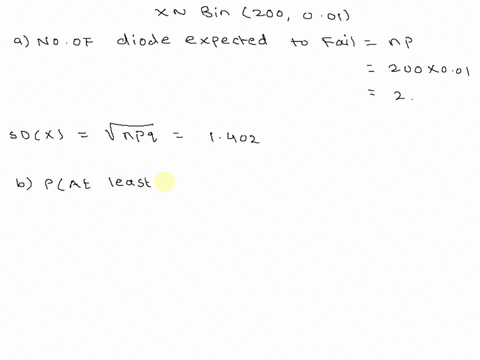 XN Bin (200, 0.01)
a) NO. OF diode expected to Fail = np
= 200 X 0.01
= 2.
SD(X) = √npq = 1.402
b) P(At least